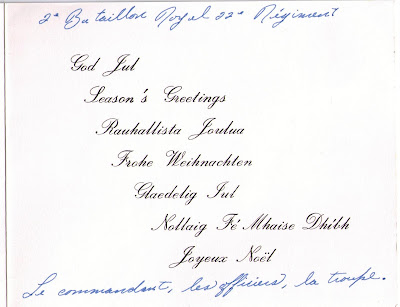 2e Bataillon Royal 22e Régiment
God Jul
Season's Greetings
Rauhallista Joulua
Frohe Weihnachten
Glaedelig Jul
Nollaig Fé Mhaise Dhíbh
Joyeux Noël
Le commandant, les officiers, la troupe.